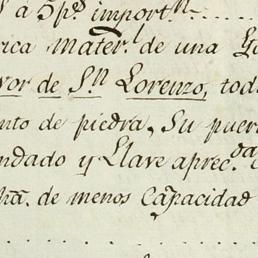 a 5ps. importn.
rica mater.l de una
vor de Sn. Lorenzo, tod
nto de piedra, Su puer
ndado y Llave aprec.da
ña. de menos Capacidad